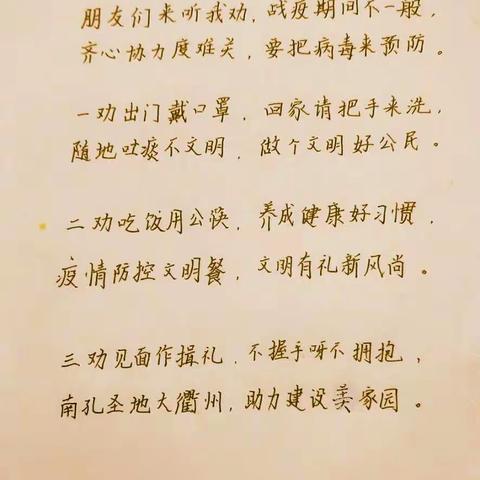 朋友们来听我劝，战疫期间不一般，
齐心协力度难关，要把病毒来预防。
一劝出门戴口罩，回家请把手来洗，
随地吐痰不文明，做个文明好公民。
二劝吃饭用公筷，养成健康好习惯，
疫情防控文明餐，文明有礼新风尚。
三劝见面作揖礼，不握手呀不拥抱，
南孔圣地大衢州，助力建设美家园。